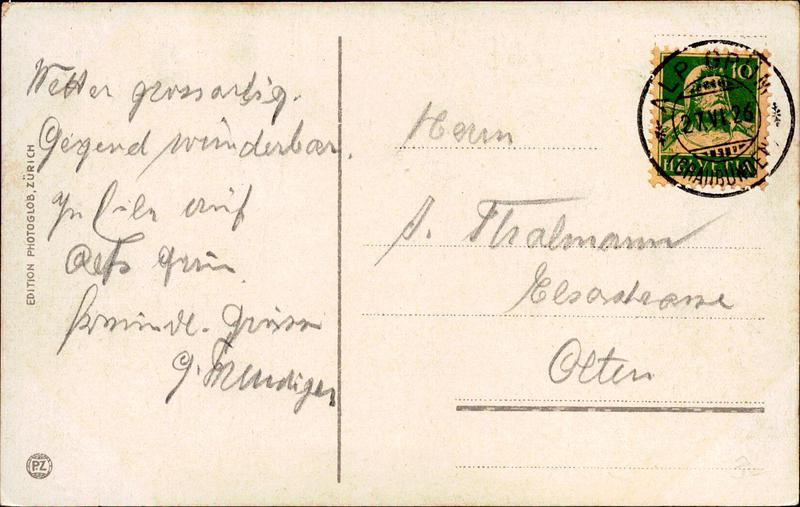 Wetter grossartig.
Gegend wunderbar.
In Eile auf
Alp Grüm
freundl. Grüsse
G.
Herrn
A. Thalmann
Elsastrasse
Olten
ALP GRÜM
27.VI.26
(GRAUBÜNDEN)
10
HELVETIA
EDITION PHOTOGLOB, ZÜRICH
PZ